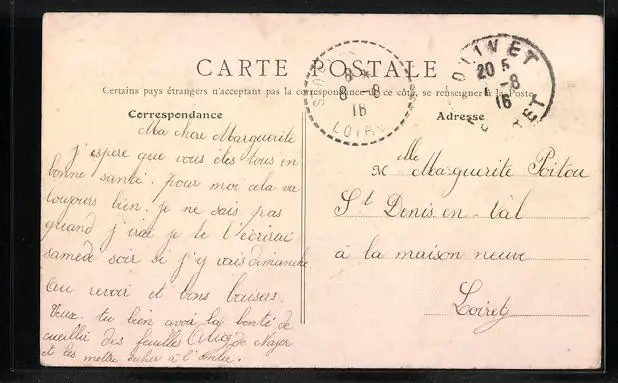 CARTE POSTALE
Certains pays étrangers n'acceptant pas la correspondance de ce côté, se renseigner à la Poste
Correspondance
Adresse
8-8
16
LOIR
OLIVET
20 5
-8
16
LOIRET
Ma chere Marguerite
j'espere que vous êtes tous en
bonne santé. pour moi cela va
toujours bien. je ne sais pas
quand j'irai je te l'écrirai
samedi soir si j'y vais dimanche.
Au revoir et bons baisers.
Veux-tu bien avoir la bonté de
cueillir des feuilles de Noyer
et les mettre sécher à l'ombre.
Mlle Marguerite Poitou
St Denis en-Val
à la maison neuve
Loiret